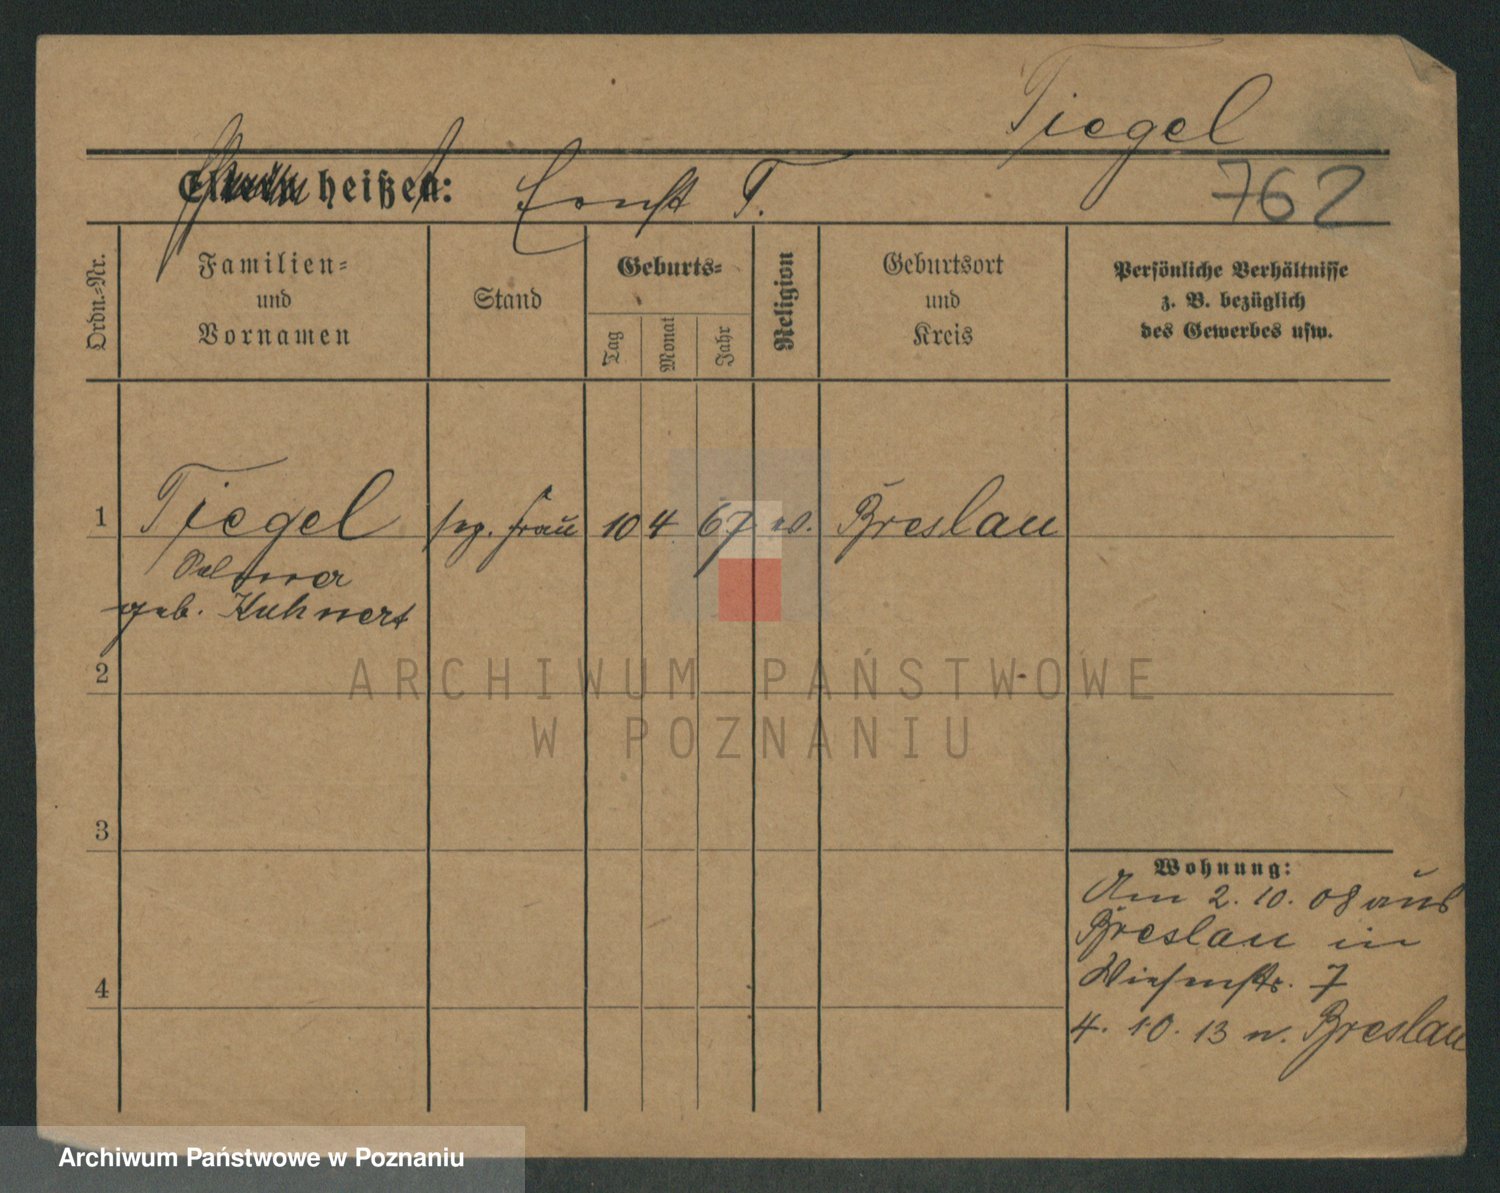 Tiegel
Eltern heißen: Ernst T.
762
Ordn.-Nr.
Familien-
und
Vornamen
Stand
Geburts-
Tag
Monat
Jahr
Religion
Geburtsort
und
Kreis
Persönliche Verhältnisse
z. B. bezüglich
des Gewerbes usw.
1 Tiegel Frau 10 4 67 ev. Breslau
Selma
geb. Kuhnert
2
ARCHIWUM PAŃSTWOWE
W POZNANIU
3
Wohnung:
Am 2. 10. 08 aus
Breslau in
Wiesenstr. 7
4
4. 10. 13 n. Breslau
Archiwum Państwowe w Poznaniu